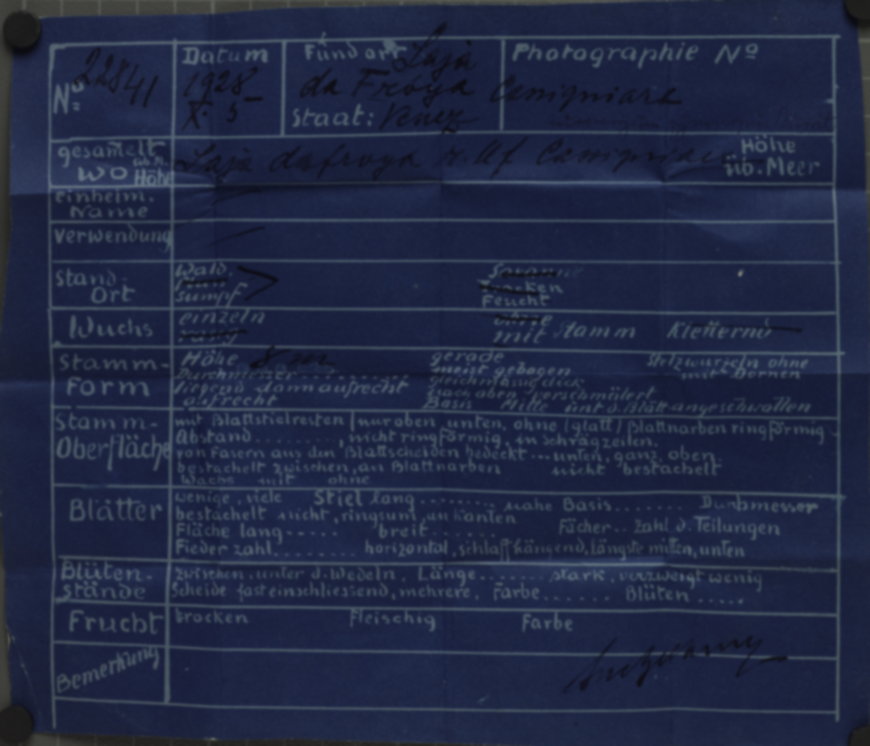 Datum Fundort Laja Photographie Nº
Nº 22841 1928 da Froya Casiquiare
X. 5 Staat: Venez
gesam̅elt wo üb. M. Höhe Laja da froya r. Uf Casiquiare Höhe üb. Meer
einheim. Name
Verwendung
Stand-Ort Wald.
sumpf Feucht
Wuchs einzeln ohne
mit Stamm Kletternd
Stamm-Form Höhe 8 m gerade Stelzwurzeln ohne
Durchmesser .......... meist gebogen mit Dornen
liegend dann aufrecht gleichmässig dick
aufrecht nach oben verschmälert
Basis Mitte unt d. Blätt angeschwollen
Stamm-Oberfläche mit Blattstielresten nur oben, unten, ohne (glatt) Blattnarben ringförmig
Abstand ........, nicht ringförmig, in schrägzeilen.
von Fasern aus den Blattscheiden bedeckt... unten, ganz, oben
bestachelt zwischen, an Blattnarben nicht bestachelt
Wachs mit ohne
Blätter wenige, viele Stiel lang ........ nahe Basis ....... Durchmesser
bestachelt nicht, ringsum, an Kanten
Fläche lang ..... breit ....... Fächer.. Zahl d. Teilungen
Fieder zahl ........ horizontal, schlaff hängend, längste mitten, unten
Blüten-stände zwischen, unter d. Wedeln, Länge ....... stark, verzweigt wenig
Scheide fast einschliessend, mehrere, Farbe ...... Blüten .....
Frucht trocken Fleischig Farbe
Bemerkung